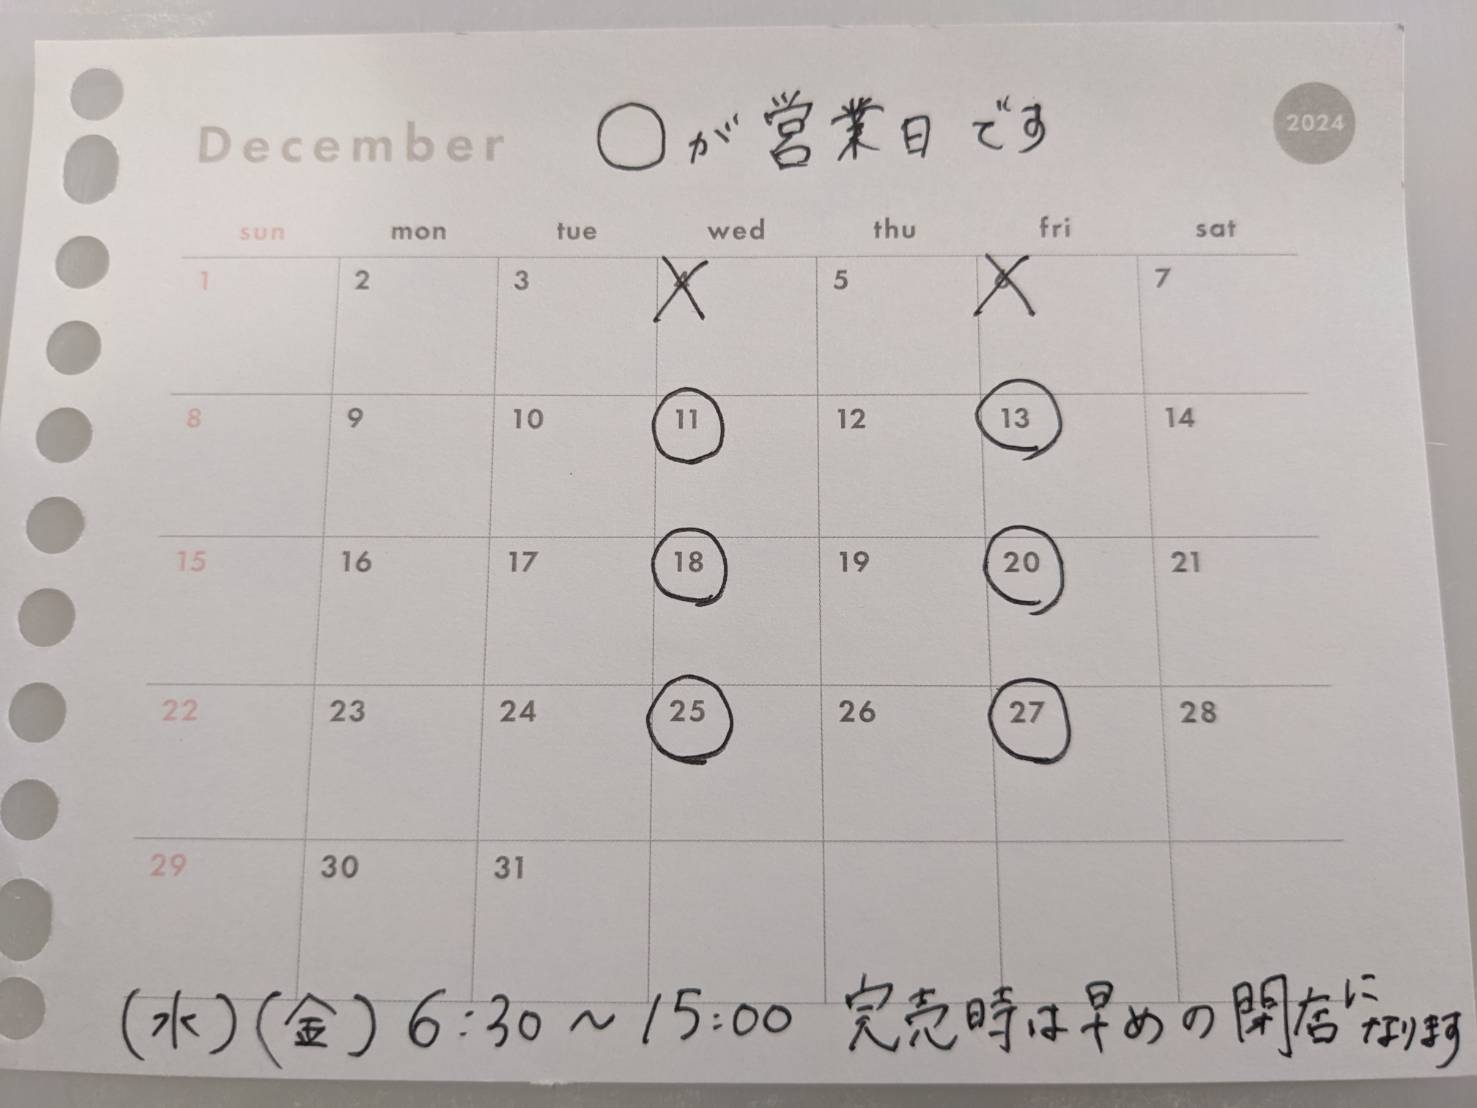 December ○が営業日です 2024
sun mon tue wed thu fri sat
1 2 3 4 5 6 7
8 9 10 11 12 13 14
15 16 17 18 19 20 21
22 23 24 25 26 27 28
29 30 31
(水)(金) 6:30~15:00 完売時は早めの閉店になります